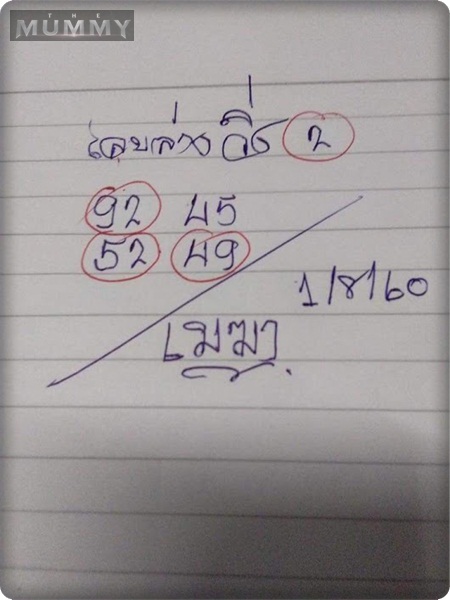 THE
MUMMY
เลขล่าง วิ่ง 2
92 45
52 49
1/8/60
เมฆา